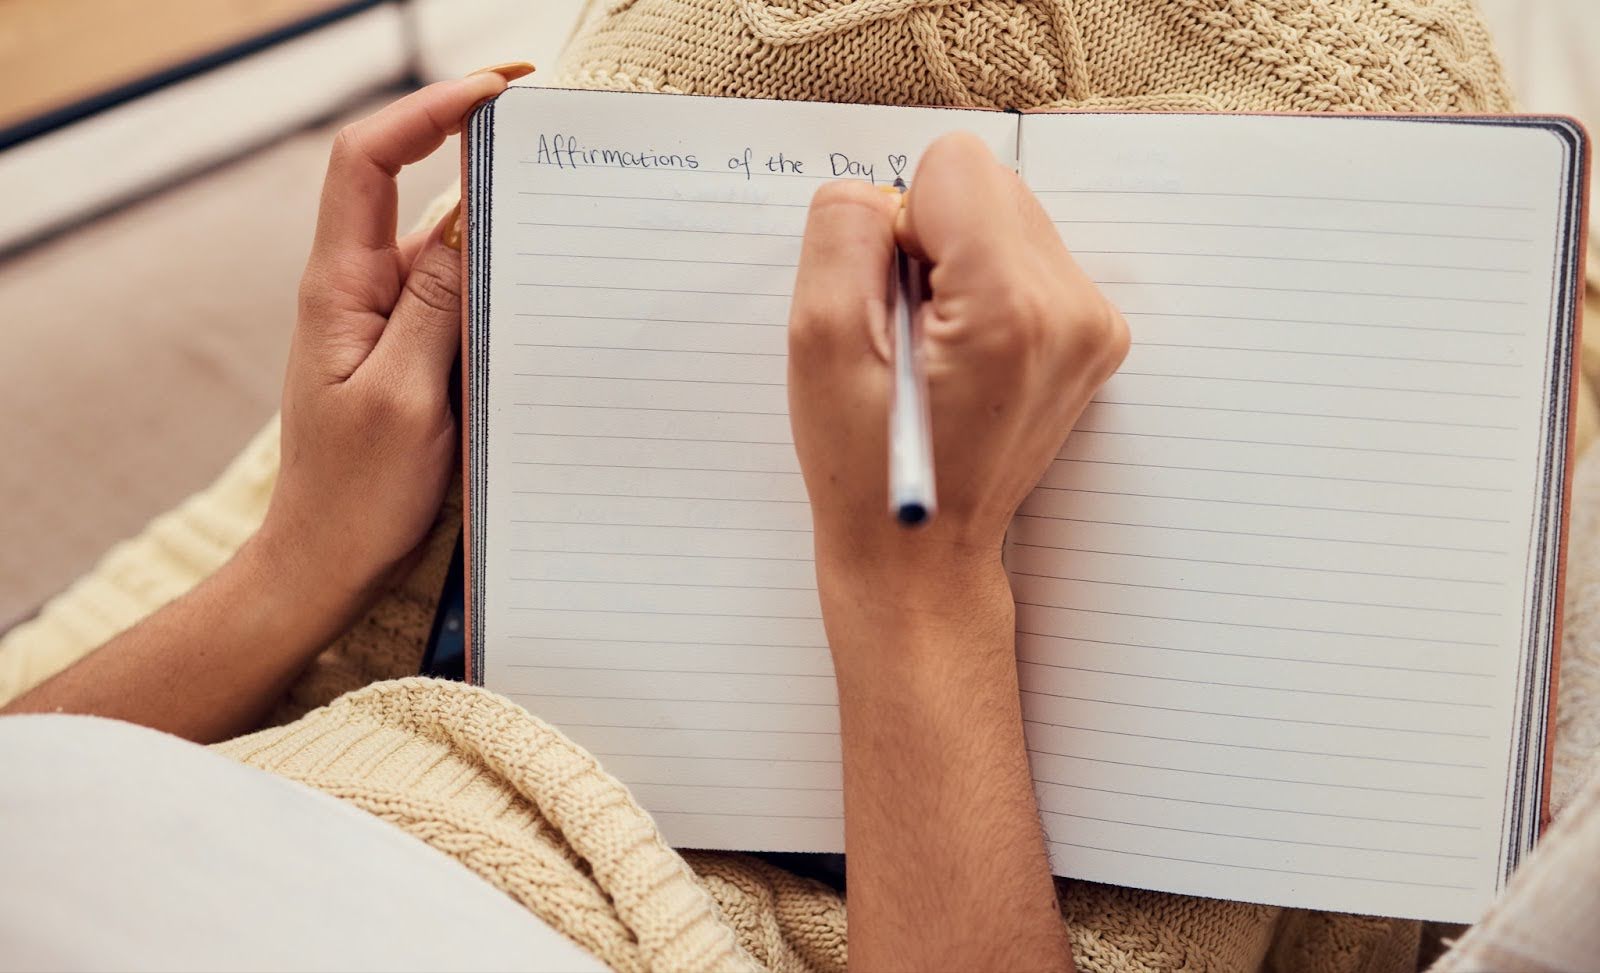 Affirmations of the Day ♡